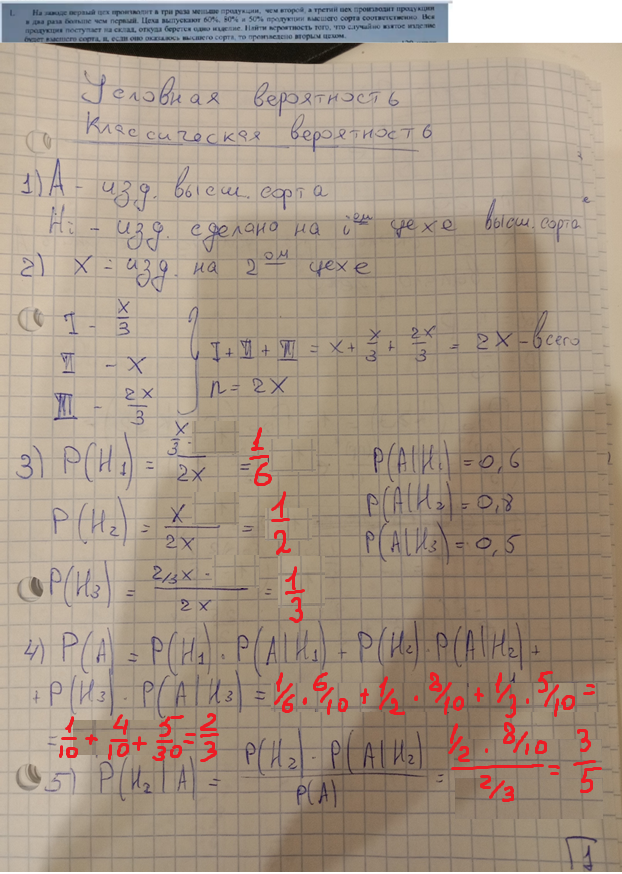 1. На заводе первый цех производит в три раза меньше продукции, чем второй, а третий цех производит продукции
в два раза больше чем первый. Цеха выпускают 60%, 80% и 50% продукции высшего сорта соответственно. Вся
продукция поступает на склад, откуда берется одно изделие. Найти вероятность того, что случайно взятое изделие
будет высшего сорта, и, если оно оказалось высшего сорта, то произведено вторым цехом.
Условная вероятность
Классическая вероятность
1) A - изд. высш. сорта
Hi - изд. сделано на i ом цехе высш. сорта
2) x - изд. на 2 ом цехе
I - x/3
II - x
III - 2x/3
I + II + III = x + x/3 + 2x/3 = 2x - всего
n = 2x
3) P(H₁) = (x/3)/2x = 1/6 P(A|H₁) = 0,6
P(H₂) = x/2x = 1/2 P(A|H₂) = 0,8
P(H₃) = (2/3x)/2x = 1/3 P(A|H₃) = 0,5
4) P(A) = P(H₁) · P(A|H₁) + P(H₂) · P(A|H₂) +
+ P(H₃) · P(A|H₃) = 1/6 · 6/10 + 1/2 · 8/10 + 1/3 · 5/10 =
= 1/10 + 4/10 + 5/30 = 2/3
5) P(H₂|A) = P(H₂) · P(A|H₂)/P(A) = (1/2 · 8/10)/(2/3) = 3/5
1